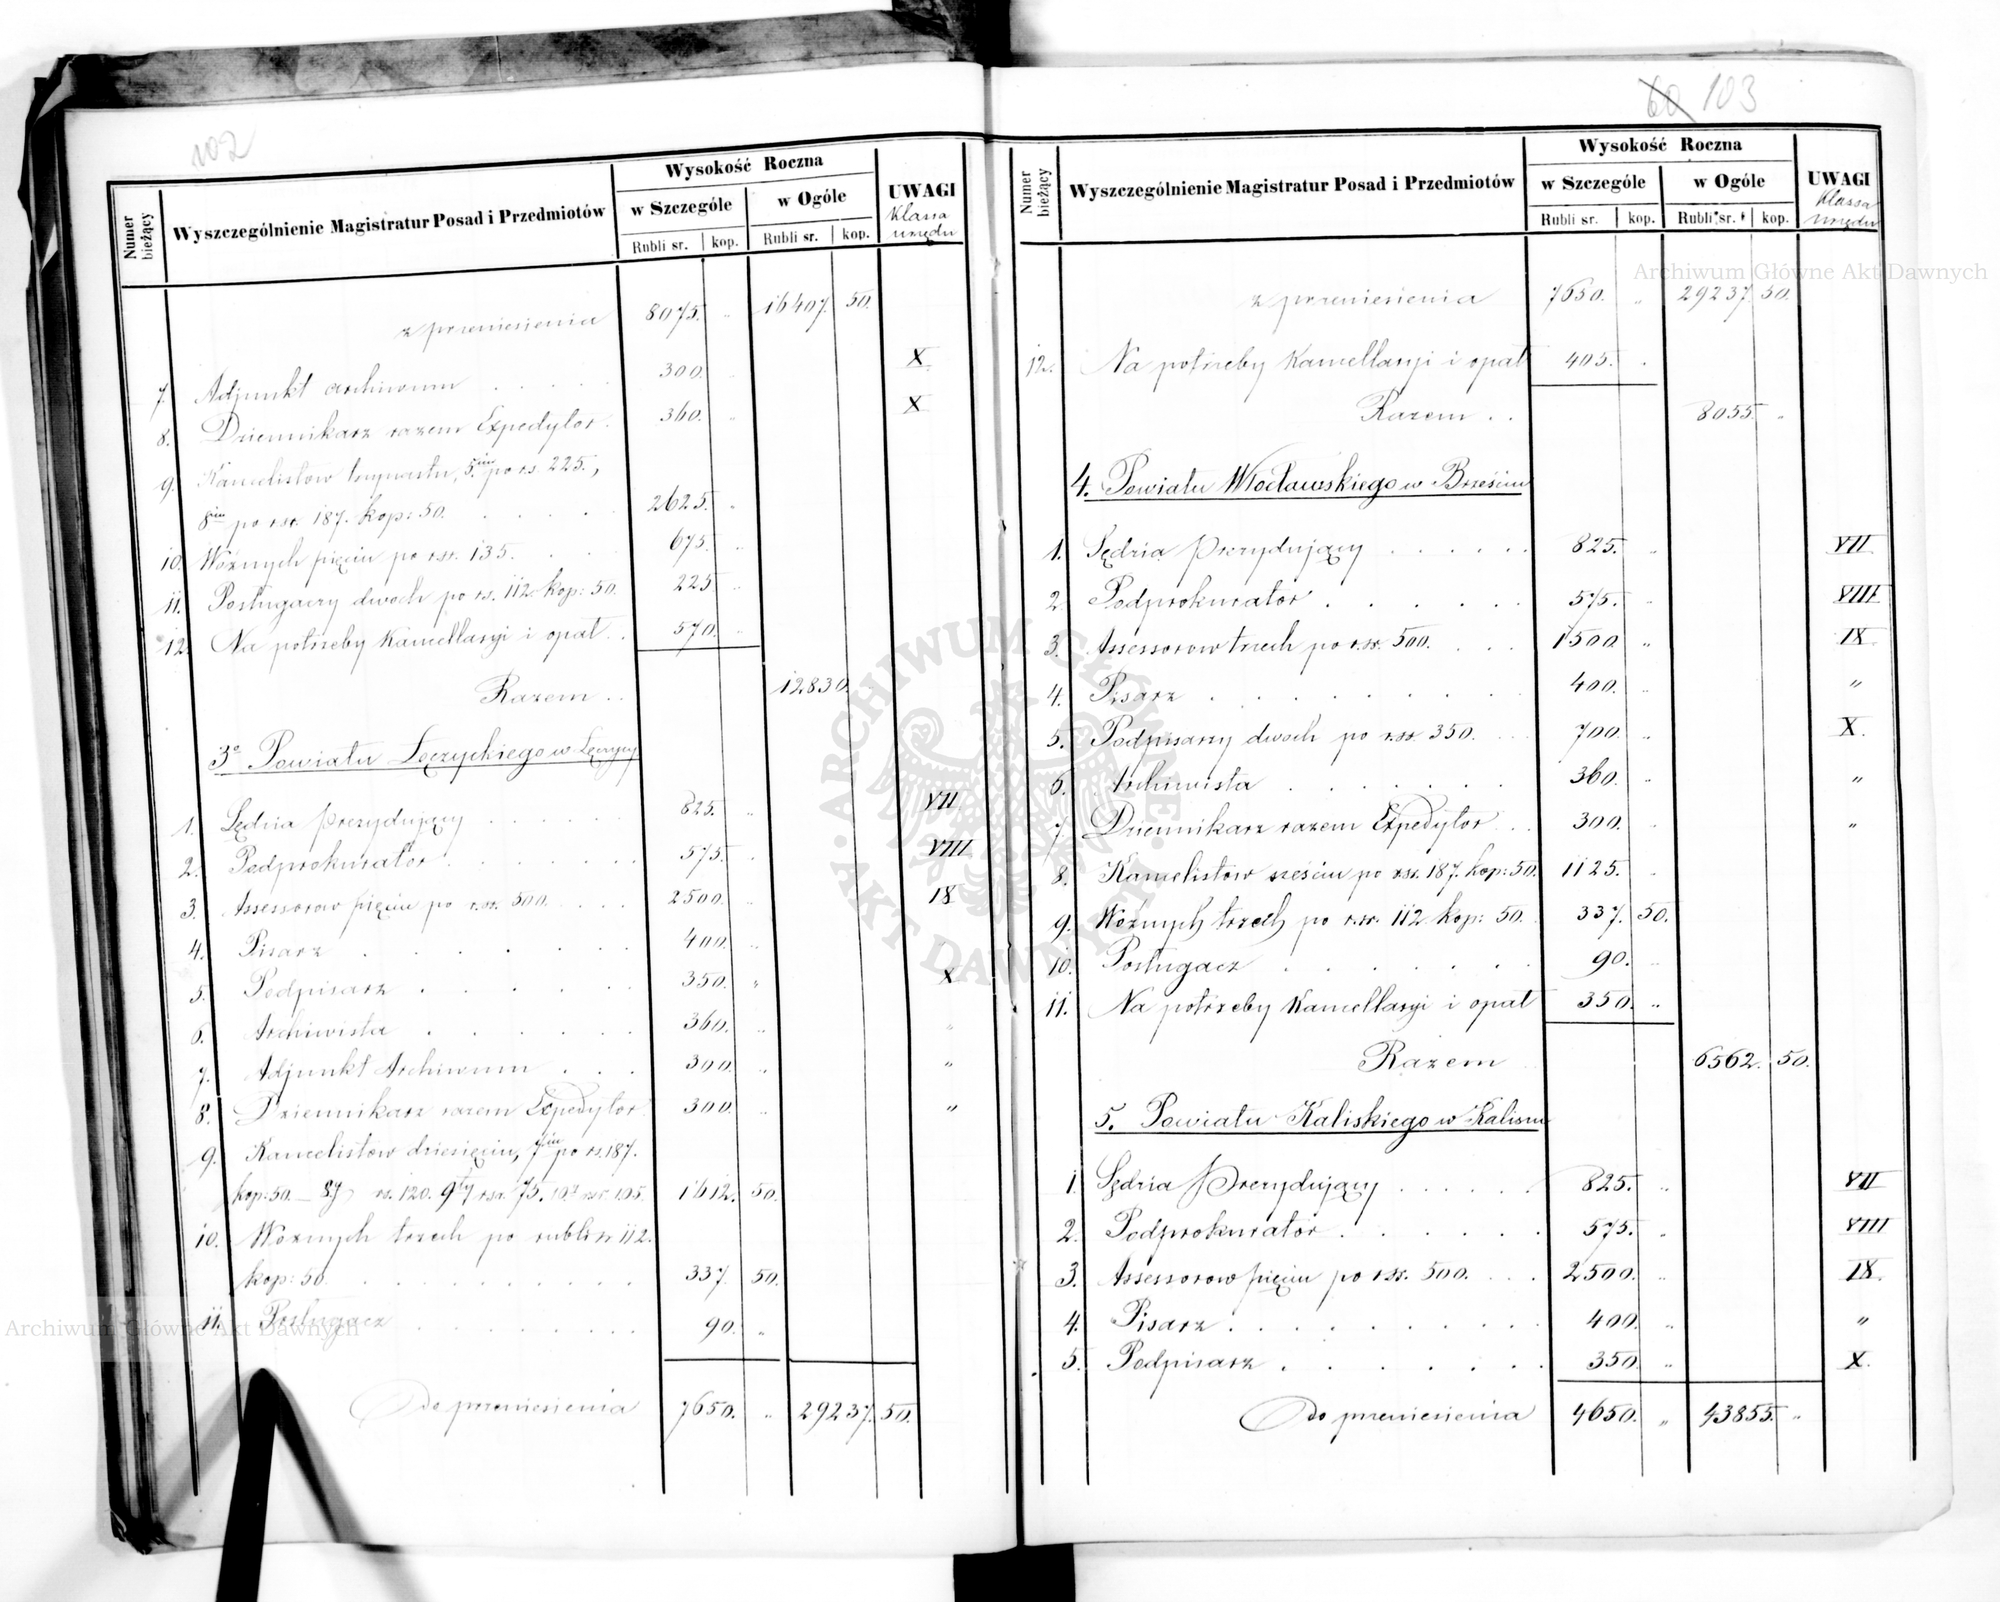 102
Numer bieżący
Wyszczególnienie Magistratur Posad i Przedmiotów
Wysokość Roczna
w Szczególe
w Ogóle
Rubli sr. kop. Rubli sr. kop.
UWAGI
Klassa
urzędu
z przeniesienia 8075. " 16407. 50.
7. Adjunkt archiwum . . . . . 300. " X
8. Dziennikarz razem Expedytor . 360. " X
9. Kancelistów trzynastu, 5.iu po rs. 225.,
8iu po rsr. 187. kop: 50. . . . . 2625. "
10. Woźnych pięciu po rsr. 135. . . . 675. "
11. Posługaczy dwóch po rs. 112. kop: 50. 225 "
12. Na potrzeby Kancellaryi i opał . . 570. "
Razem . . 12830.
3o Powiatu Łęczyckiego w Łęczycy
1. Sędzia prezydujący . . . . . . 825. " VII
2. Podprokurator . . . . . . 575. " VIII
3. Assessorow pięciu po rsr. 500. . . . 2500. " IX
4. Pisarz . . . . . . 400. " "
5. Podpisarz . . . . . 350. " X
6. Archiwista . . . . . 360. " "
7. Adjunkt Archiwum . . . 300. " "
8. Dziennikarz razem Expedytor 300. " "
9. Kancelistów dziesięciu, 7iu po rs. 187.
kop: 50. — 8y rs. 120. 9ty rsr. 75. 10y rsr. 105. 1612. 50.
10. Woźnych trzech po rubli sr 112.
kop: 50. . . . . . . . 337. 50.
11. Posługacz . . . . . . . 90. "
Do przeniesienia 7650. " 29237. 50.
60 103
Numer bieżący
Wyszczególnienie Magistratur Posad i Przedmiotów
Wysokość Roczna
w Szczególe
w Ogóle
Rubli sr. kop. Rubli sr. kop.
UWAGI
Klassa
urzędu
z przeniesienia 7650. " 29237 50.
12. Na potrzeby Kancellaryi i opał 405. "
Razem . . 8055. "
4. Powiatu Włocławskiego w Brześciu
1. Sędzia prezydujący . . . . . . 825. " VII
2. Podprokurator . . . . . . 575. " VIII
3. Assessorow trzech po rsr. 500. . . . 1500. " IX
4. Pisarz . . . . . . . . 400. " "
5. Podpisarzy dwóch po rsr 350. . . 700. " X.
6. Archiwista . . . . . . 360. " "
7. Dziennikarz razem Expedytor . . 300. " "
8. Kancelistow sześciu po rsr. 187. kop: 50. 1125. "
9. Woźnych trzech po rsr. 112 kop: 50. 337. 50.
10. Posługacz . . . . . . . 90. "
11. Na potrzeby Kancellaryi i opał 350. "
Razem 6562. 50.
5. Powiatu Kaliskiego w Kaliszu
1. Sędzia Prezydujący . . . . . 825. " VII
2. Podprokurator . . . . . . 575. " VIII
3. Assessorow pięciu po rsr. 500. . . . 2500. " IX.
4. Pisarz . . . . . . . . . 400. " "
5. Podpisarz . . . . . . . 350. " X.
Do przeniesienia 4650. " 43855. "
Archiwum Główne Akt Dawnych
ARCHIWUM GŁÓWNE · AKT DAWNYCH ·
Archiwum Główne Akt Dawnych